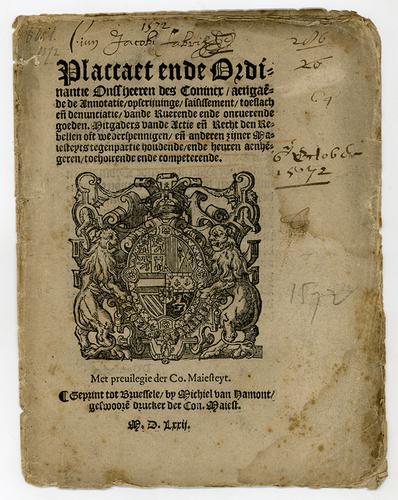 1572
Jacobi
206
26
Plactaet ende Ordi-
nantie Onss heeren des Conincx / aengaē-
de de Annotatie / opscriuinge / saisissement / toeslach
eñ denunciatie / vande Ruerende ende onruerende
goeden. Mitgaders vande Actie eñ Recht den Re-
bellen oft wederspennigen / eñ anderen zijner Ma-
iesteyts tegenpartie houdende / ende heuren aenhē-
geren / toehoirende ende competerende.
6 October
1572
1572
Met preuilegie der Co. Maiesteyt.
Geprint tot Bruessele / by Michiel van Hamont /
geswoorē drucker der Con. Maiest.
M. D. Lxxij.